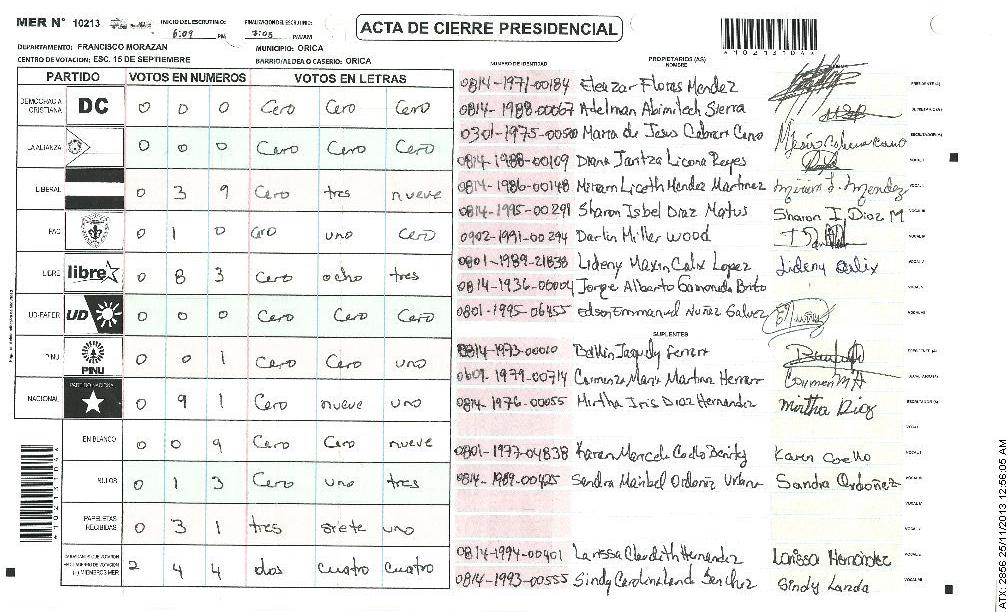 MER N° 10213
INICIO DEL ESCRUTINIO: 6:09 PM
FINALIZACION DEL ESCRUTINIO: 7:05 PM/AM
ACTA DE CIERRE PRESIDENCIAL
*10213104*
DEPARTAMENTO: FRANCISCO MORAZAN
MUNICIPIO: ORICA
CENTRO DE VOTACION: ESC. 15 DE SEPTIEMBRE
BARRIO/ALDEA O CASERIO: ORICA
PARTIDO VOTOS EN NUMEROS VOTOS EN LETRAS
DEMOCRACIA CRISTIANA DC 0 0 0 Cero Cero Cero
LA ALIANZA 0 0 0 Cero Cero Cero
LIBERAL 0 3 9 Cero tres nueve
PAC 0 1 0 Cero uno Cero
LIBRE libre 0 8 3 Cero ocho tres
UD-FAPER UD 0 0 0 Cero Cero Cero
PINU PINU 0 0 1 Cero Cero uno
NACIONAL PARTIDO NACIONAL 0 9 1 Cero nueve uno
EN BLANCO 0 0 9 Cero Cero nueve
NULOS 0 1 3 Cero uno tres
PAPELETAS RECIBIDAS 0 3 1 tres siete uno
2 4 4 dos cuatro cuatro
NUMERO DE IDENTIDAD
PROPIETARIOS (AS)
NOMBRE
0814-1971-00184 Eleazar Flores Mendez
0814-1988-00067 Adelman Abimilech Sierra
0301-1975-00500 Maria de Jesus Cabrera Cano
0814-1988-00109 Diana Jaritza Licona Reyes
0814-1986-00148 Miriam Liceth Mendez Martinez Miriam L. Mendez
0814-1995-00291 Sharon Isbel Diaz Matus Sharon I. Diaz M
0902-1991-00294 Darlin Miller Wood
0801-1989-21838 Lideny Maxin Calix Lopez Lideny Calix
0814-1936-00004 Jorge Alberto Brito
0801-1995-06455 Edson Emmanuel Nuñez Galvez
SUPLENTES
0814-1973-00010
0609-1979-00714 Carmenza Maria Martinez Herrera
0814-1976-00055 Mirtha Iris Diaz Hernandez Mirtha Diaz
0801-1977-04838 Karen Marcela Coello Benitez Karen Coello
0814-1989-00425 Sandra Maribel Ordoñez Urbina Sandra Ordoñez
0814-1994-00401 Larissa Claudeth Hernandez Larissa Hernández
0814-1993-00555 Sindy Carolina Landa Sanchez Sindy Landa
ATX: 2956 25/11/2013 12:56:05 AM